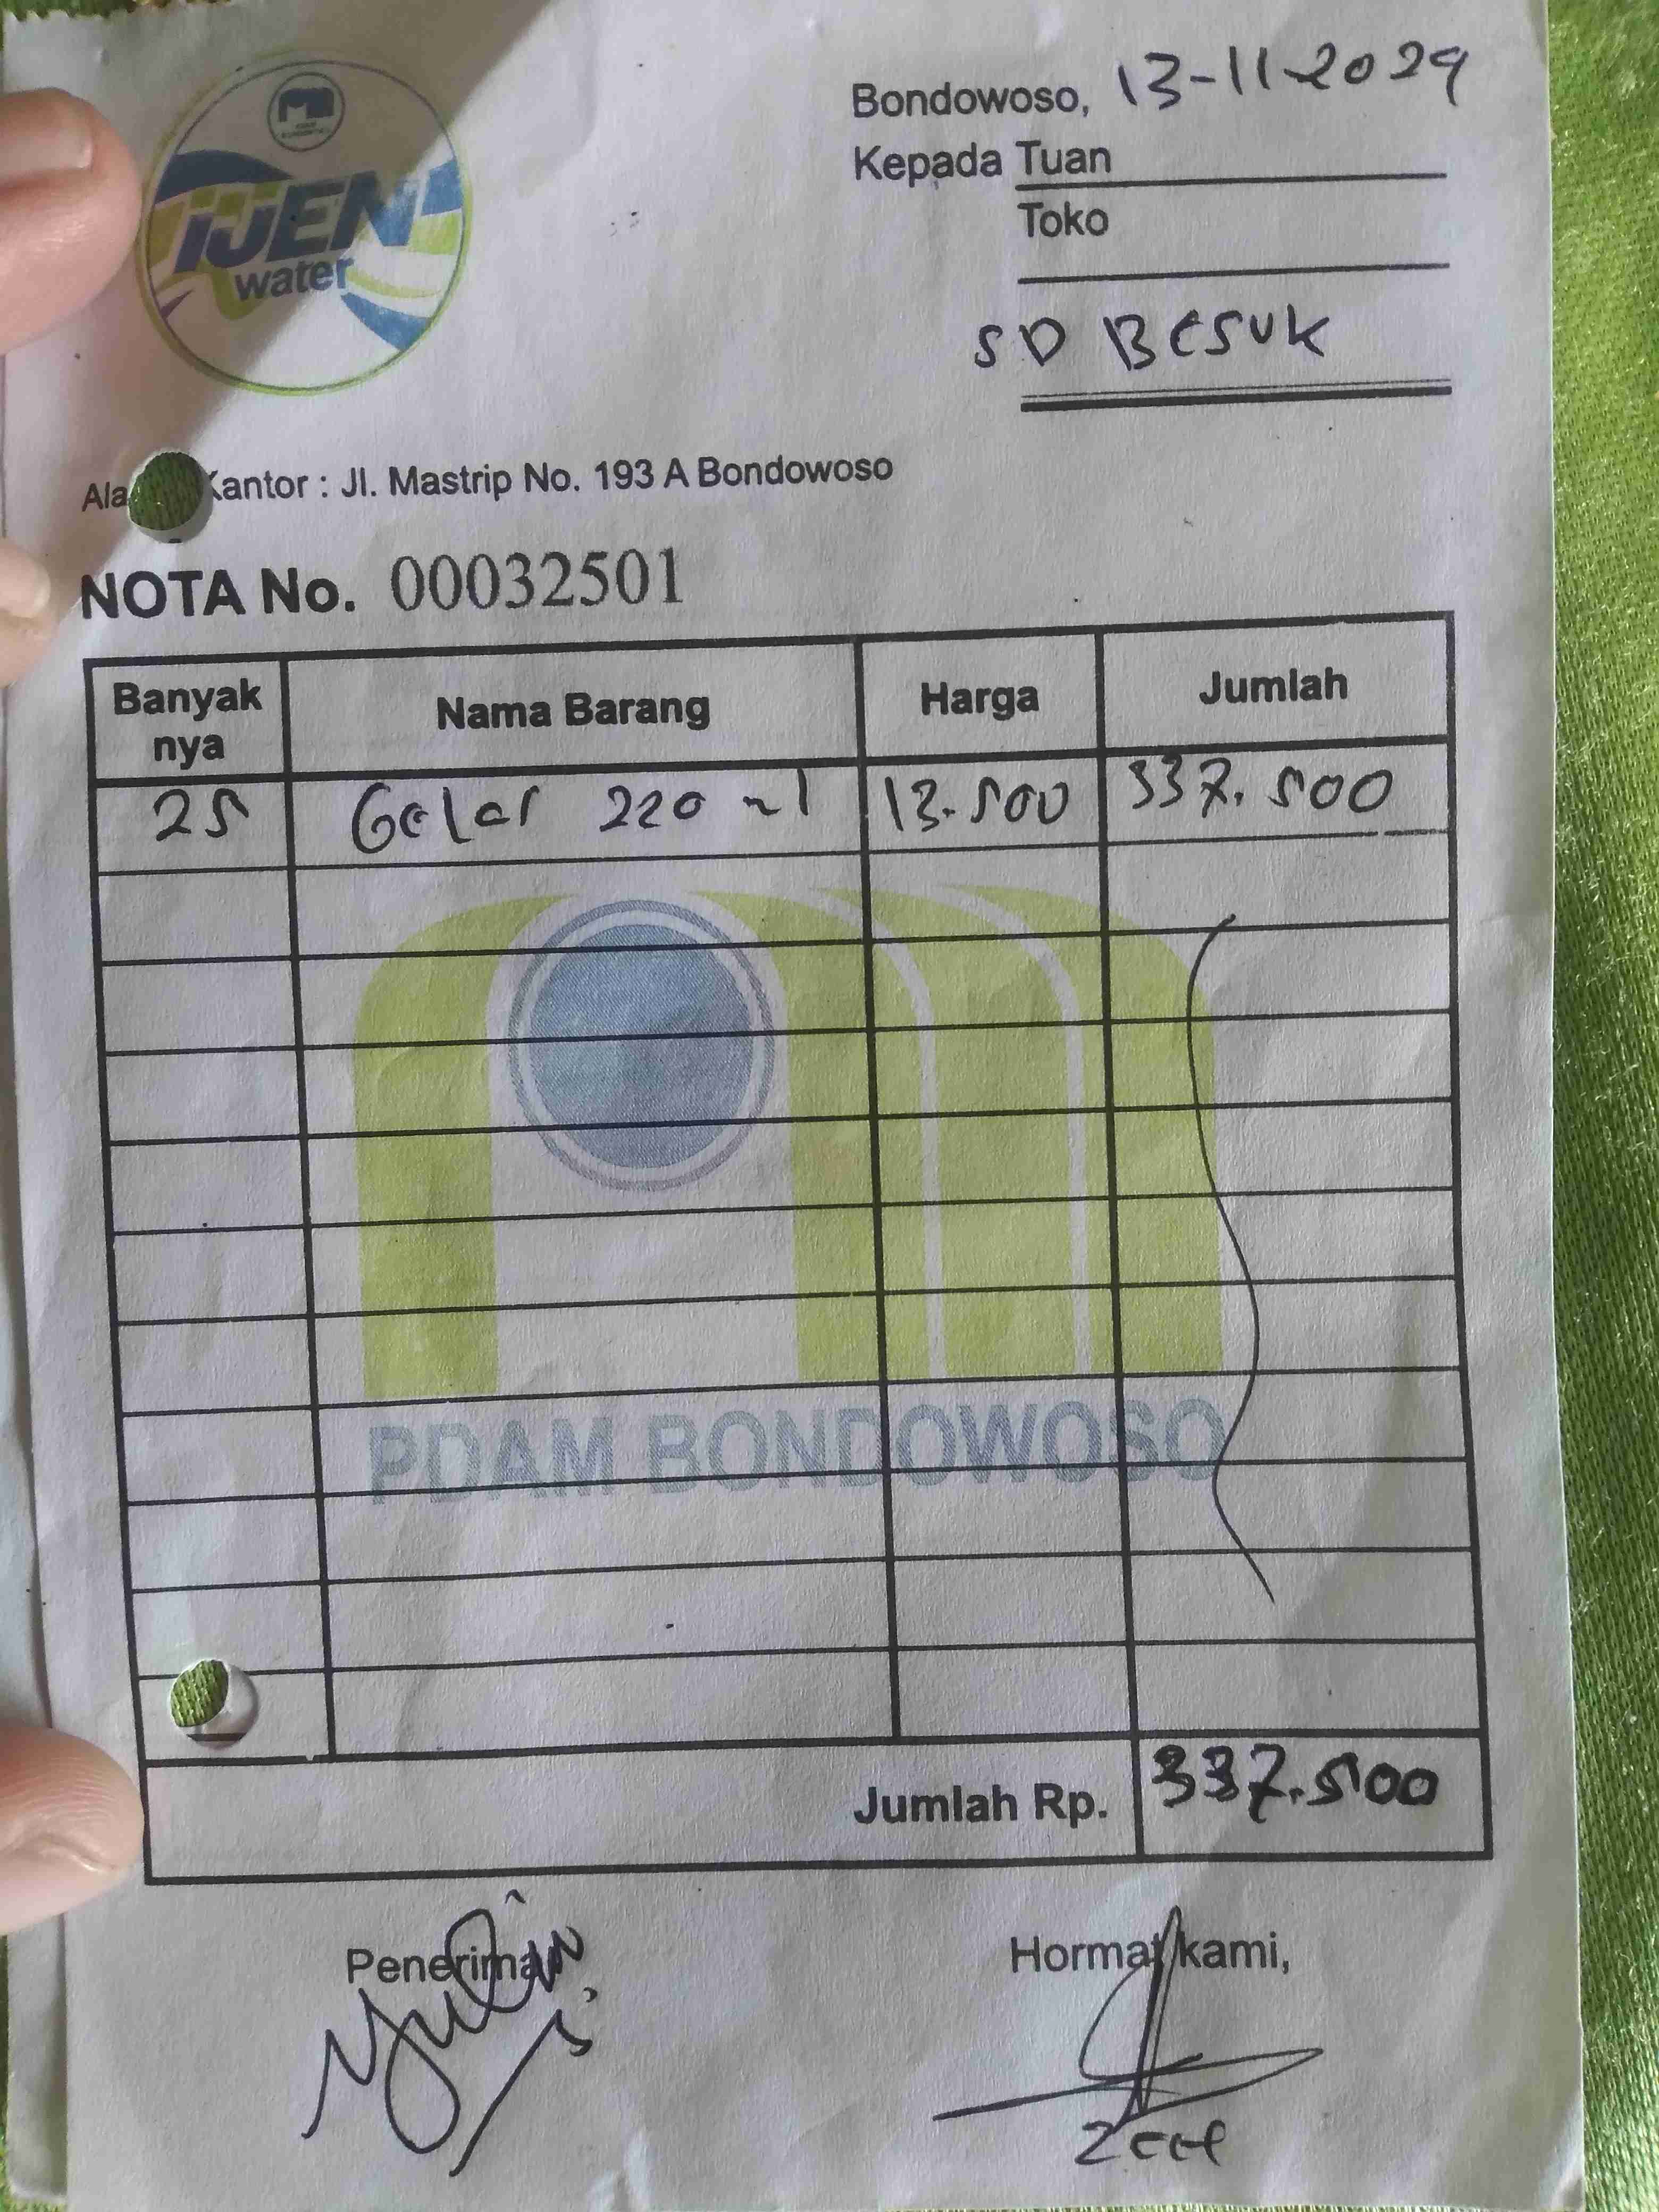 IJEN
water
Bondowoso, 13-11-2024
Kepada Tuan
Toko
SD BESUK
Kantor : Jl. Mastrip No. 193 A Bondowoso
NOTA No. 00032501
Banyak nya Nama Barang Harga Jumlah
25 Gelas 220 ml 13.500 337.500
PDAM BONDOWOSO
Jumlah Rp. 337.500
Penerima Hormat kami,